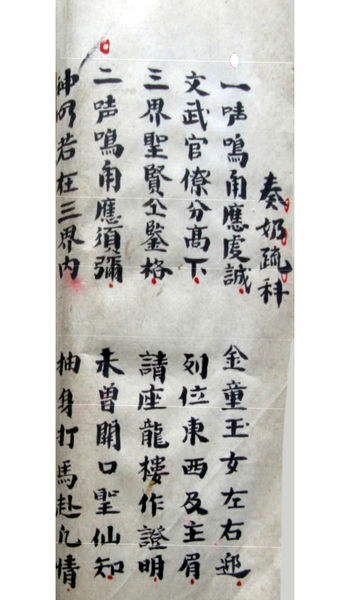 奏奶疏科
一声鳴角應虔誠 金童玉女左右迎
文武官僚分髙下 列位東西及主眉
三界聖賢仝鑒格 請座龍樓作證明
二声鳴角應須彌 未曾開口聖仙知
神明若在三界内 抽身打馬赴凡情